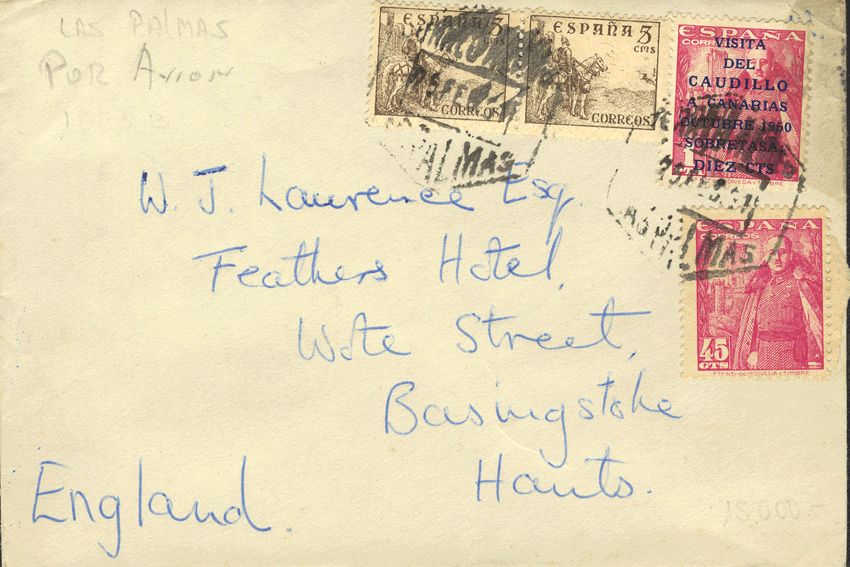 LAS PALMAS
POR AVION
ESPAÑA 5
CMS
CORREOS
ESPAÑA 5
CMS
CORREOS
ESPAÑA
CORREOS
VISITA
DEL
CAUDILLO
A CANARIAS
OCTUBRE 1950
SOBRETASA:
DIEZ CTS
PALMAS
LAS PALMAS
W. J. Laurence Esq.
Feathers Hotel,
Wote Street,
Basingstoke
Hants.
England.
ESPAÑA
CORREOS
45
CTS
15.000.-